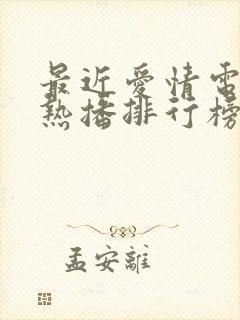 最近愛情電
熱播排行榜
孟安離